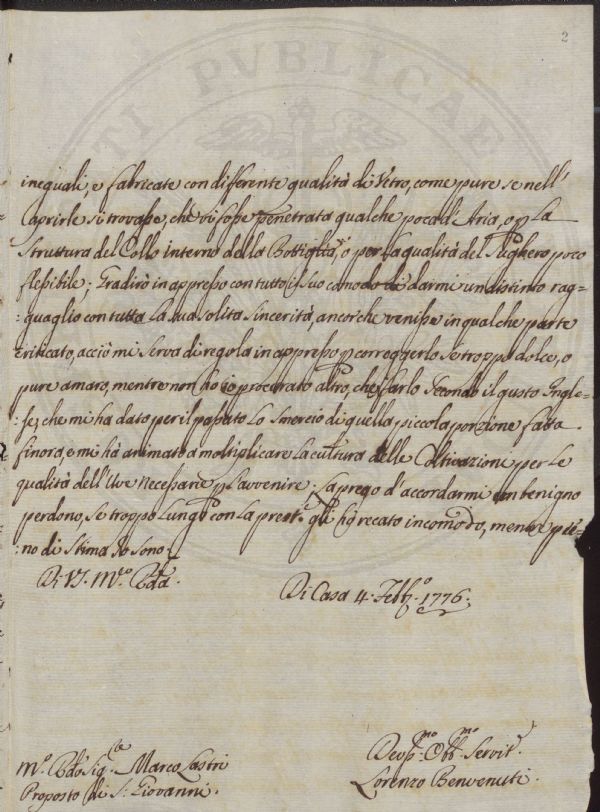 2
TI PVBLICAE
inequali, e fabricate con differente qualità di Vetro, come pure se nell'
aprirle si trovasse, che vi fosse penetrata qualche poca d'Aria, o p La
Struttura del Collo interno della Bottiglia, o per la qualità del Sughero poco
flessibile; Gradirò in appresso con tutto il suo comodo di darmi un distinto rag=
:quaglio con tutta La sua solita sincerità, ancorche venisse in qualche parte
criticato, acciò mi serva di regola in appresso p correggerlo Se troppo dolce, o
pure amaro, mentre non ho io procurato altro, che farlo Secondo il gusto Ingle=
:se, che mi ha dato per il passato Lo Smercio di quella piccola porzione fatta
finora, e mi hà animato a moltiplicare La cultura delle Coltivazioni per Le
qualità dell'Uve necessarie p L'avvenire: La prego d'accordarmi con benigno
perdono, Se troppo Lungo con La prest.e gli hò recato incomodo, mentre pie=
:no di Stima Io Sono
Di V.S. M.to
Di Casa 4. Febb.o 1776.
Dev.mo Obb.mo Servit.e
Lorenzo Benvenuti.
Marco Lastri
Proposto di S. Giovanni.